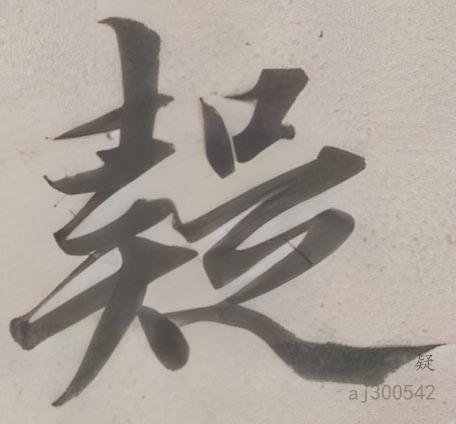 疑
疑
aj300542